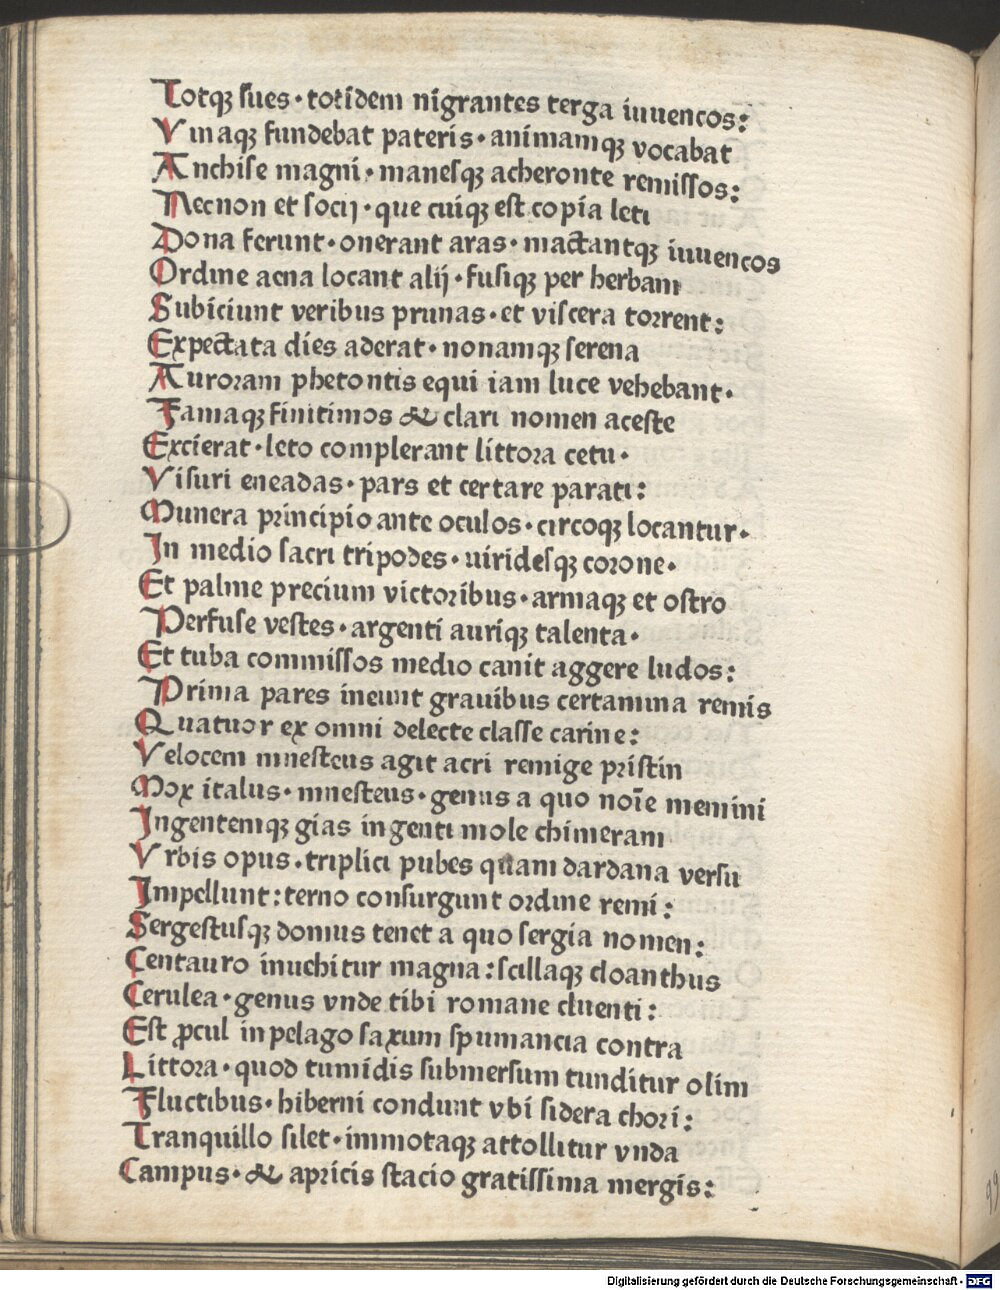 Totqꝫ sues · totidem nigrantes terga iuuencos:
Vinaqꝫ fundebat pateris · animamqꝫ vocabat
Anchise magni · manesqꝫ acheronte remissos:
Necnon et socij · que cuiqꝫ est copia leti
Dona ferunt · onerant aras · mactantqꝫ iuuencos
Ordine aena locant alij · fusiqꝫ per herbam
Subiciunt veribus prunas · et viscera torrent:
Expectata dies aderat · nonamqꝫ serena
Auroram phetontis equi iam luce vehebant·
Famaqꝫ finitimos & clari nomen aceste
Excierat · leto complerant littora cetu·
Visuri eneadas · pars et certare parati:
Munera principio ante oculos · circoqꝫ locantur·
In medio sacri tripodes · uiridesqꝫ corone·
Et palme precium victoribus · armaqꝫ et ostro
Perfuse vestes · argenti auriqꝫ talenta·
Et tuba commissos medio canit aggere ludos:
Prima pares ineunt grauibus certamina remis
Quatuor ex omni delecte classe carine:
Velocem mnesteus agit acri remige pristin
Mox italus · mnesteus · genus a quo noīe memini
Ingentemqꝫ gias ingenti mole chimeram
Vrbis opus · triplici pubes quam dardana versu
Impellunt: terno consurgunt ordine remi:
Sergestusqꝫ domus tenet a quo sergia nomen:
Centauro inuehitur magna: scillaqꝫ cloanthus
Cerulea · genus vnde tibi romane cluenti:
Est ꝓcul in pelago saxum spumancia contra
Littora · quod tumidis submersum tunditur olim
Fluctibus · hiberni condunt vbi sidera chori:
Tranquillo silet · immotaqꝫ attollitur vnda
Campus · & apricis stacio gratissima mergis:
Digitalisierung gefördert durch die Deutsche Forschungsgemeinschaft · DFG